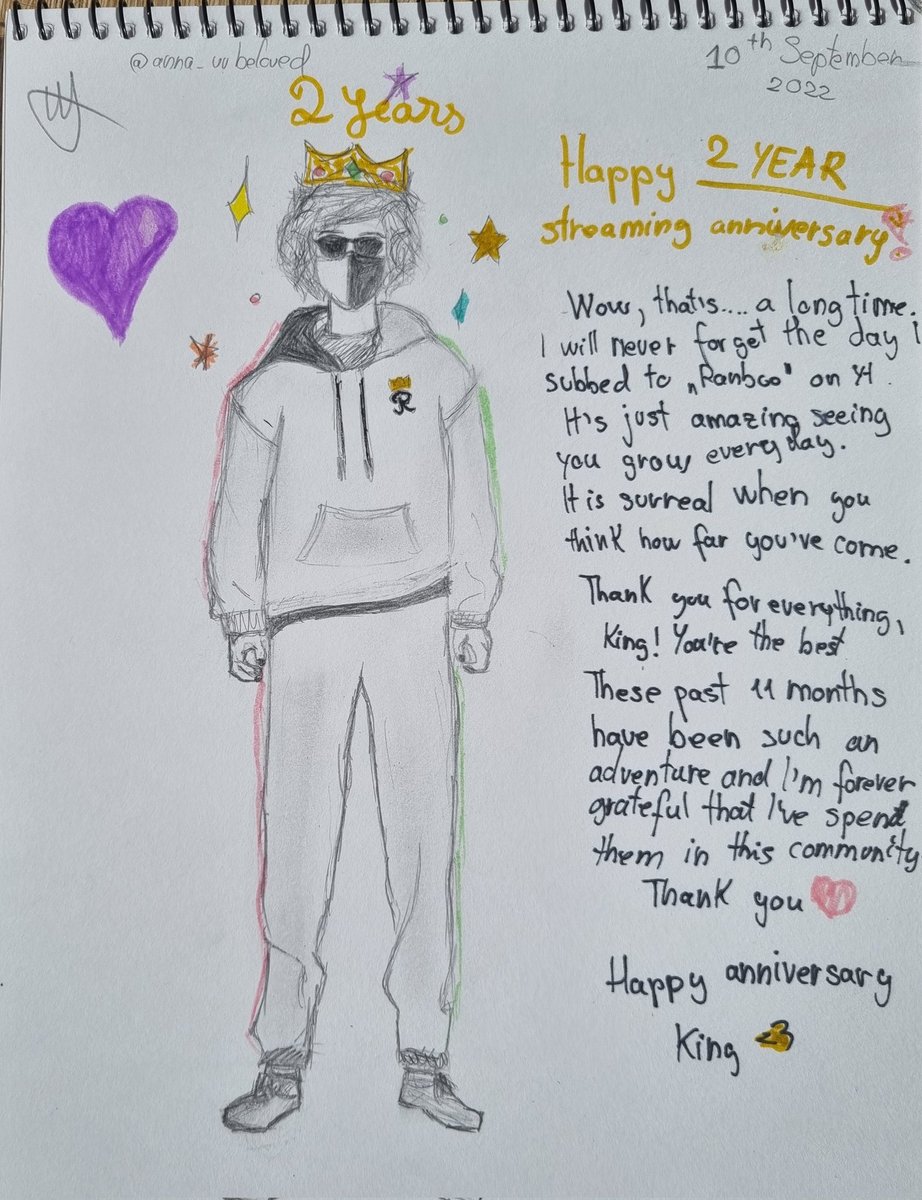 @anna_uubeloved
10th September
2022
2 years
Happy 2 YEAR
streaming anniversary!
R
Wow, that's.... a long time.
I will never forget the day i
subbed to „Ranboo" on YT.
It's just amazing seeing
you grow everyday.
It is surreal when you
think how far you've come.
Thank you for everything,
King! You're the best
These past 11 months
have been such an
adventure and I'm forever
grateful that I've spend
them in this community
Thank you
Happy anniversary
King <3